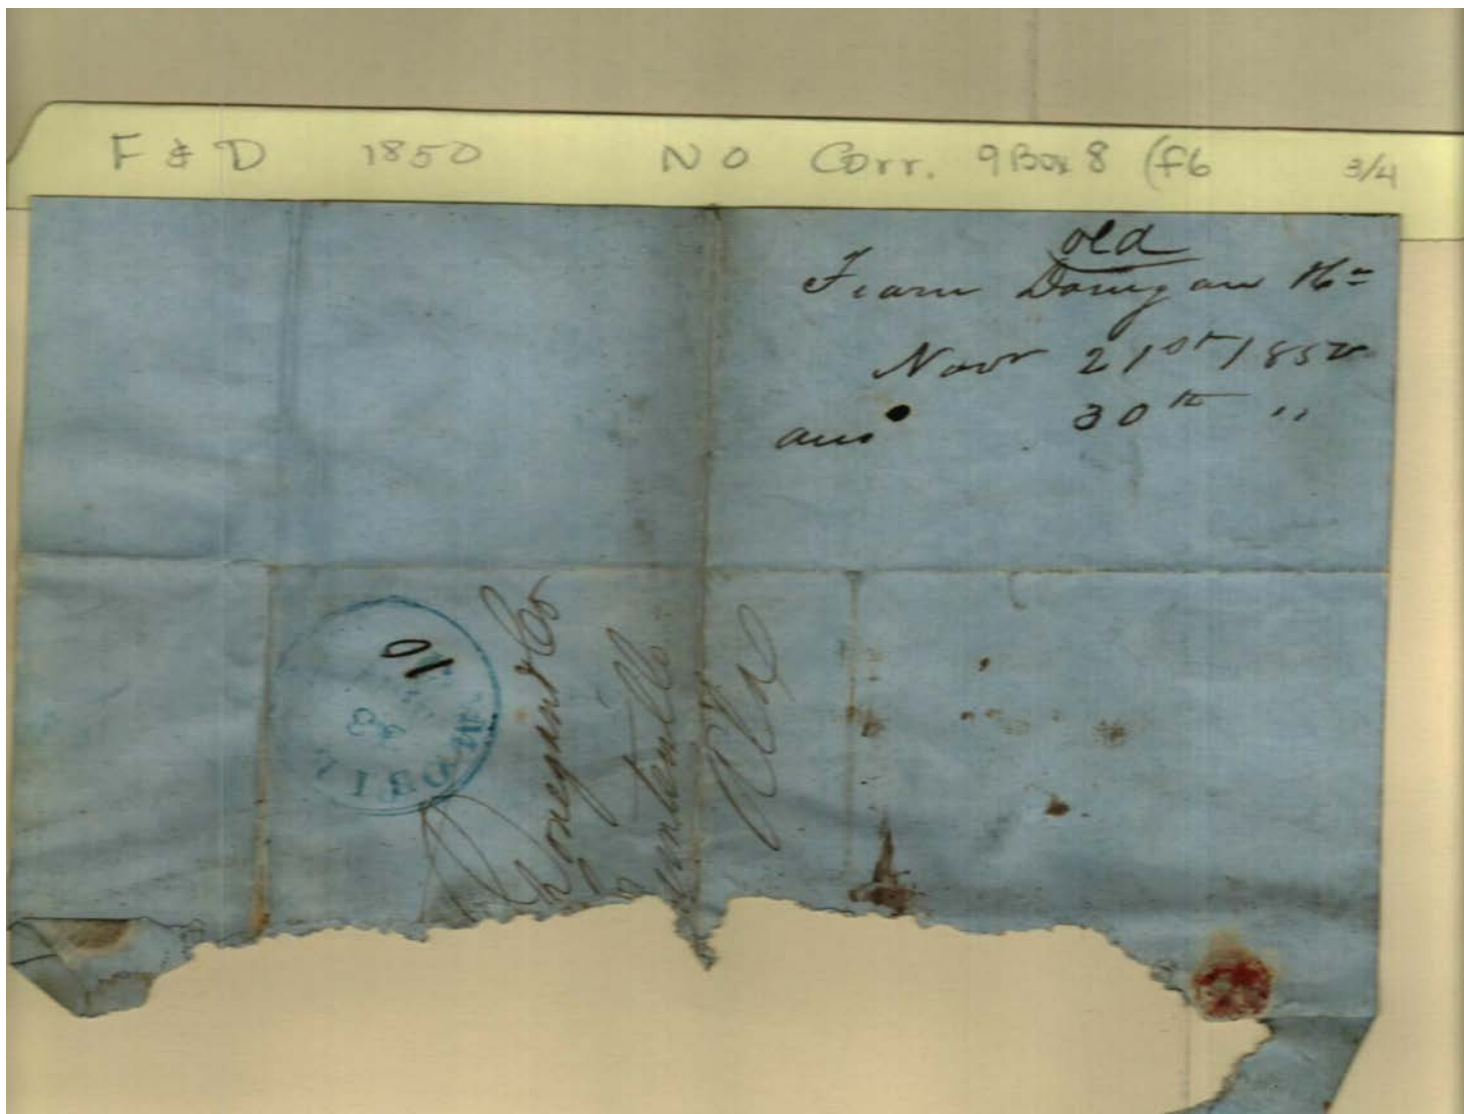 F & D 1850 NO Corr. 9 Box 8 (f6 3/4
old
Fearn Donegan &Co
Nov 21st 1850
ans 30th "
MOBIL
10
Donegan & Co
Huntsville
Ala